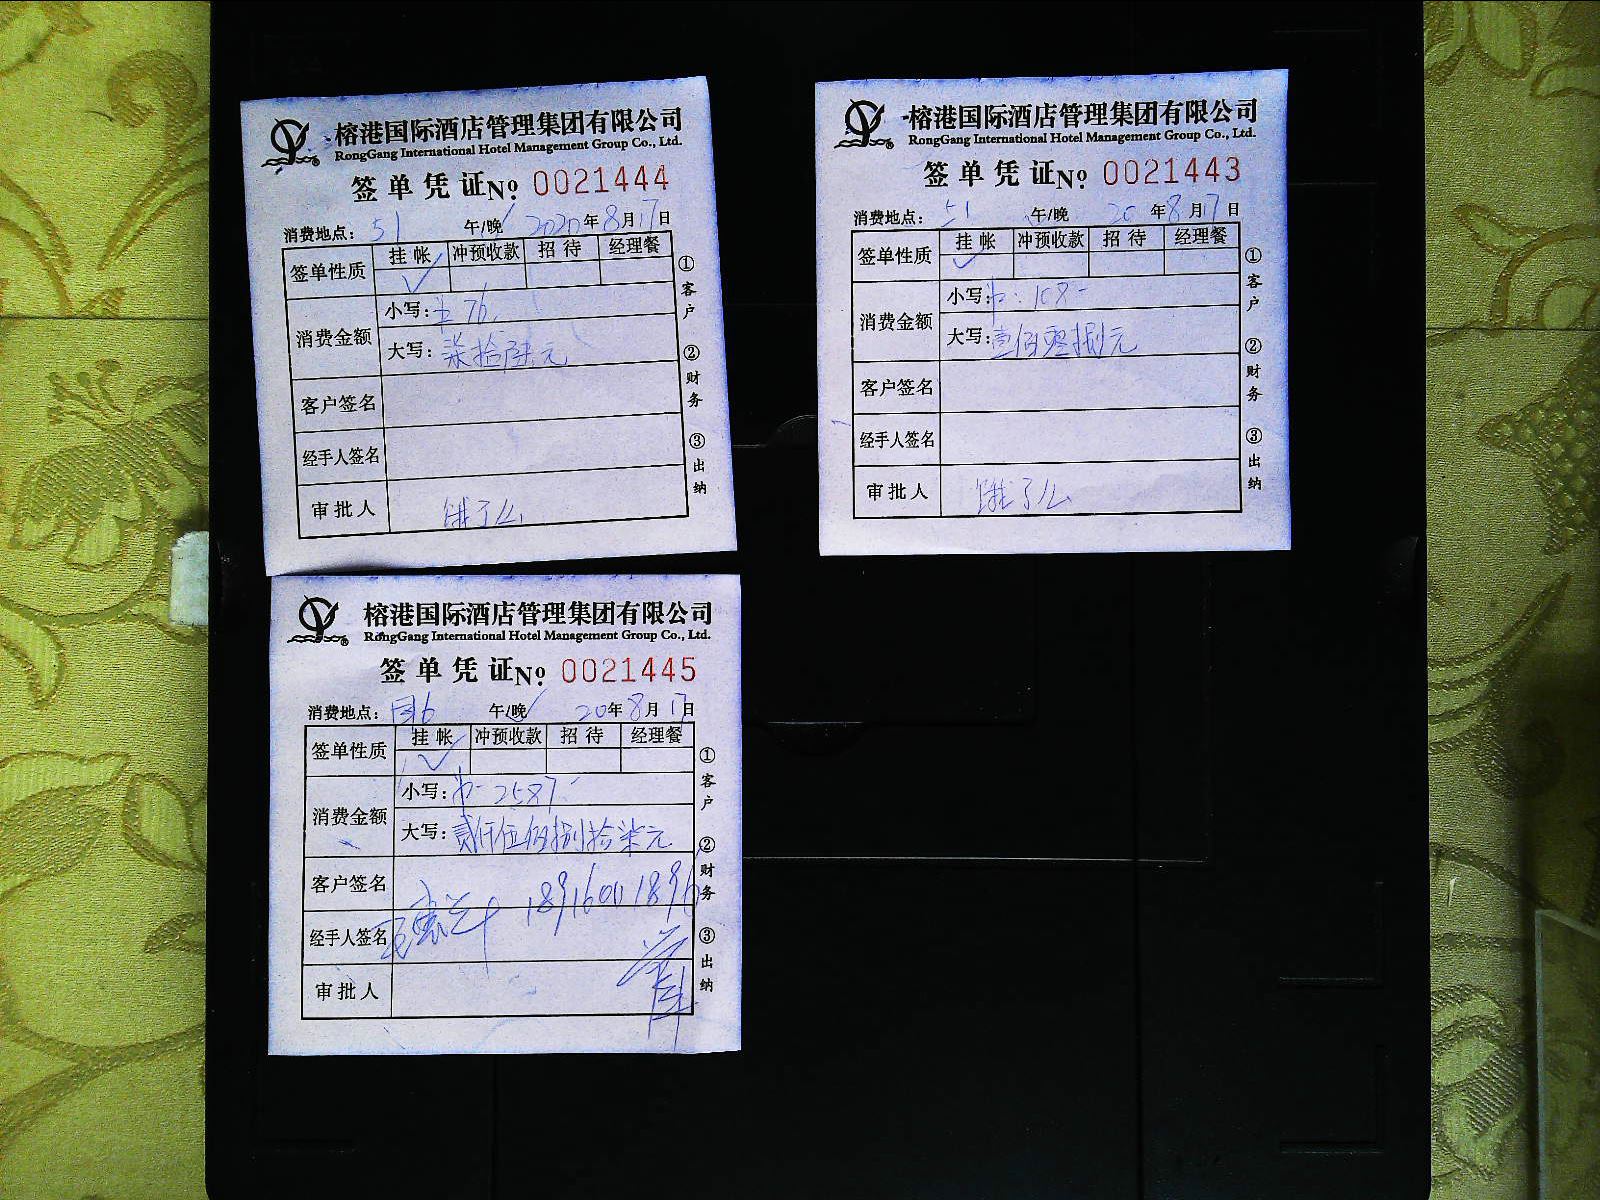 榕港国际酒店管理集团有限公司
RongGang International Hotel Management Group Co., Ltd.
签单凭证 No 0021444
消费地点：51 午/晚 2020年8月17日
签单性质 挂帐 冲预收款 招待 经理餐
消费金额
小写：76
大写：柒拾陆元
客户签名
经手人签名
审批人 饿了么
①客户 ②财务 ③出纳
榕港国际酒店管理集团有限公司
RongGang International Hotel Management Group Co., Ltd.
签单凭证 No 0021443
消费地点：51 午/晚 20年8月17日
签单性质 挂帐 冲预收款 招待 经理餐
消费金额
小写：108-
大写：壹佰零捌元
客户签名
经手人签名
审批人 饿了么
①客户 ②财务 ③出纳
榕港国际酒店管理集团有限公司
RongGang International Hotel Management Group Co., Ltd.
签单凭证 No 0021445
消费地点： 午/晚 20年8月17日
签单性质 挂帐 冲预收款 招待 经理餐
消费金额
小写：2587.-
大写：贰仟伍佰捌拾柒元
客户签名 18916001896
经手人签名
审批人
①客户 ②财务 ③出纳